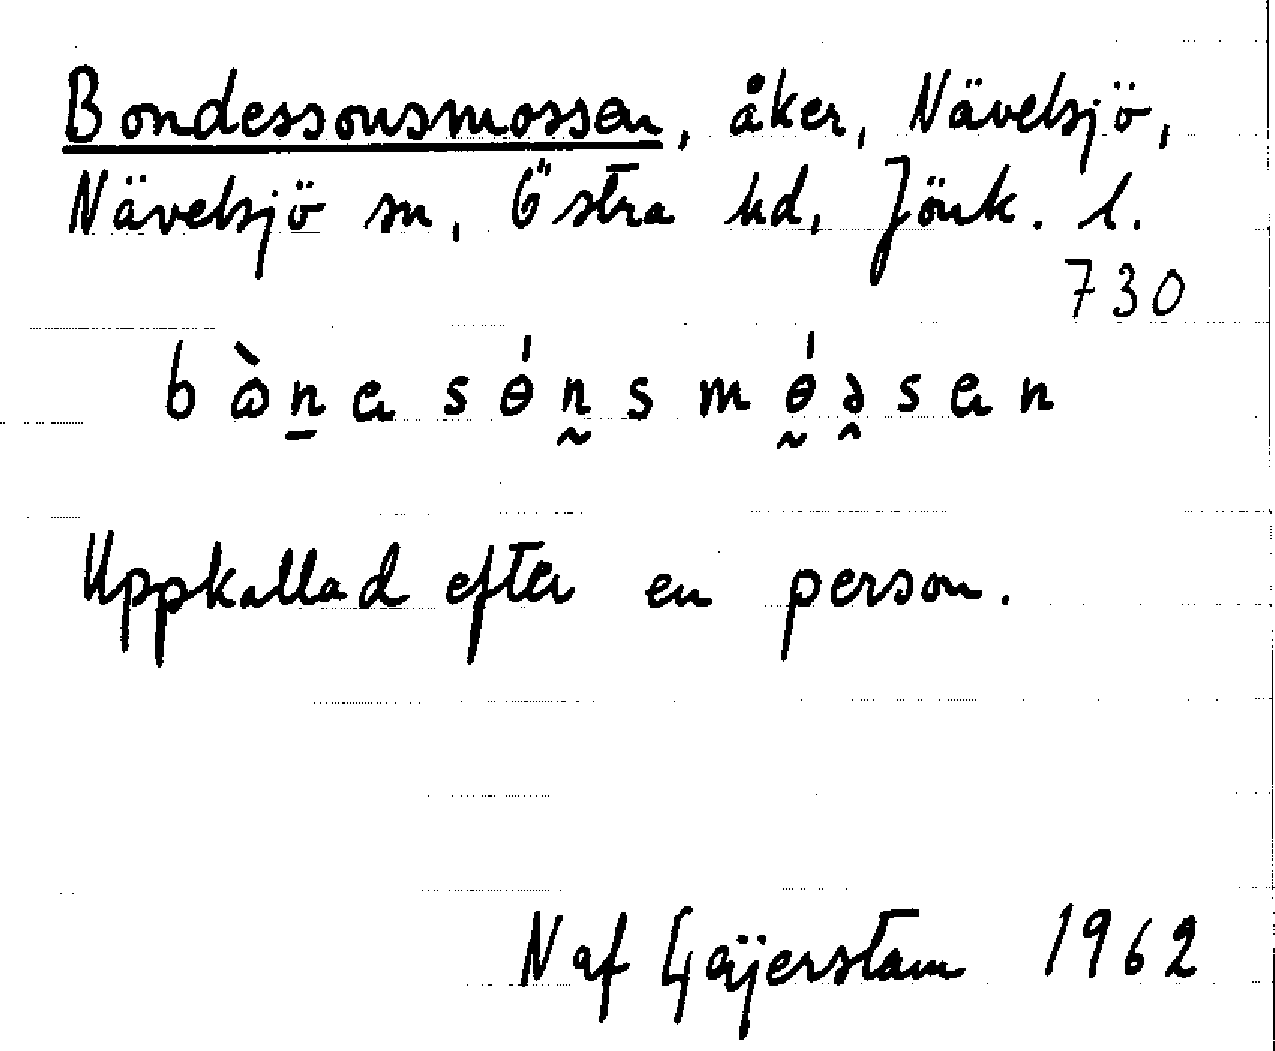 Bondessonsmossen, åker, Nävelsjö,
Nävelsjö sn, Östra hd, Jönk. l.
730
Uppkallad efter en person.
N af Geijerstam 1962